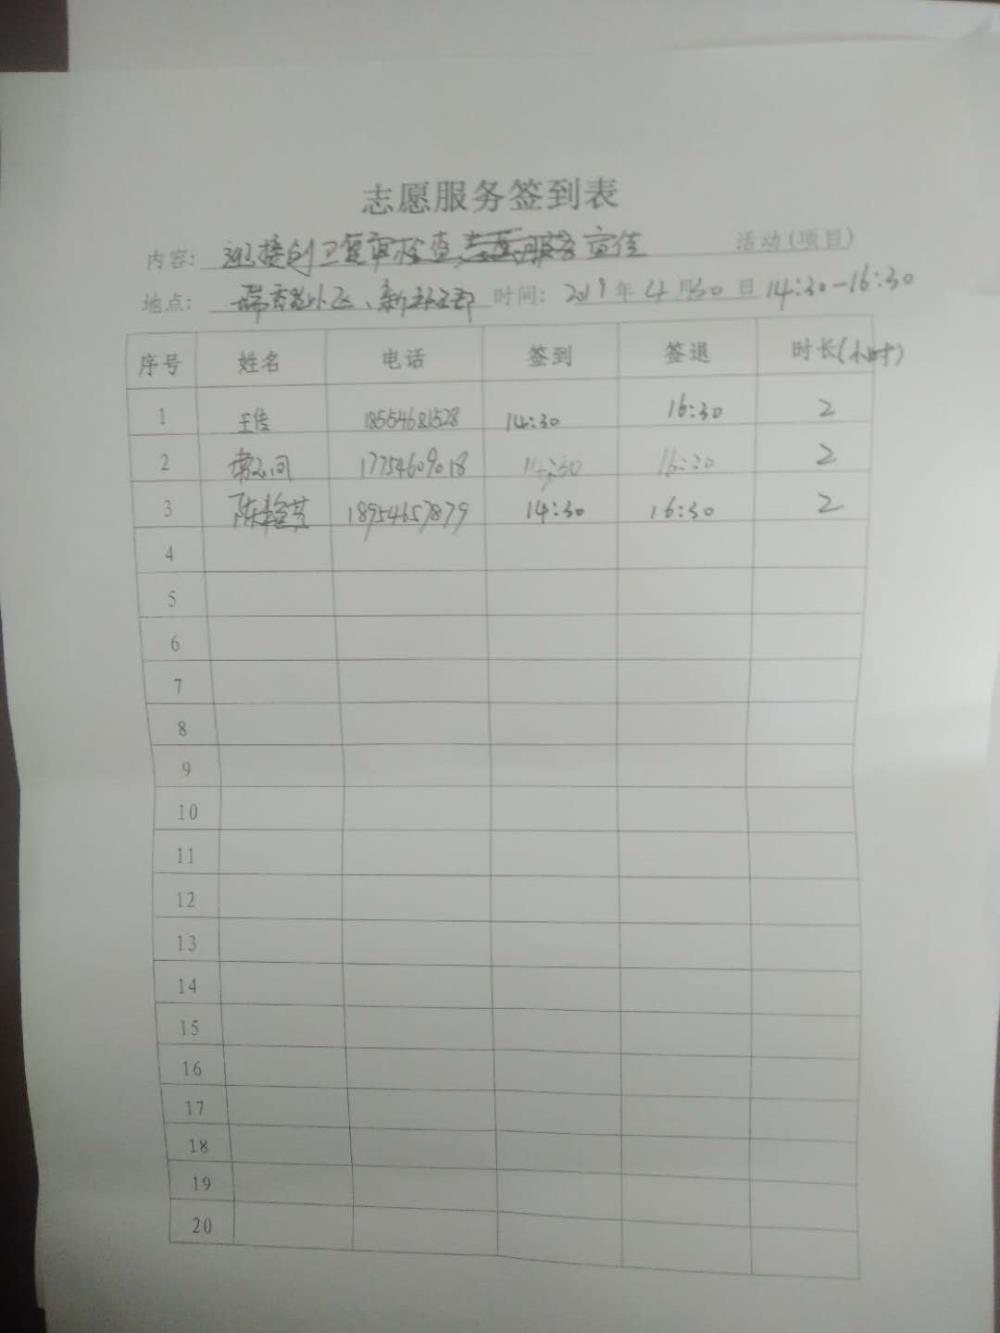 志愿服务签到表
内容: 迎接创卫复审检查志愿服务宣传 活动(项目)
地点: 小区、新 时间: 2019年4月30日14:30-16:30
序号 姓名 电话 签到 签退 时长(小时)
1 王佳 18554681528 14:30 16:30 2
2 17754609018 14:30 16:30 2
3 陈 18954657879 14:30 16:30 2
4
5
6
7
8
9
10
11
12
13
14
15
16
17
18
19
20